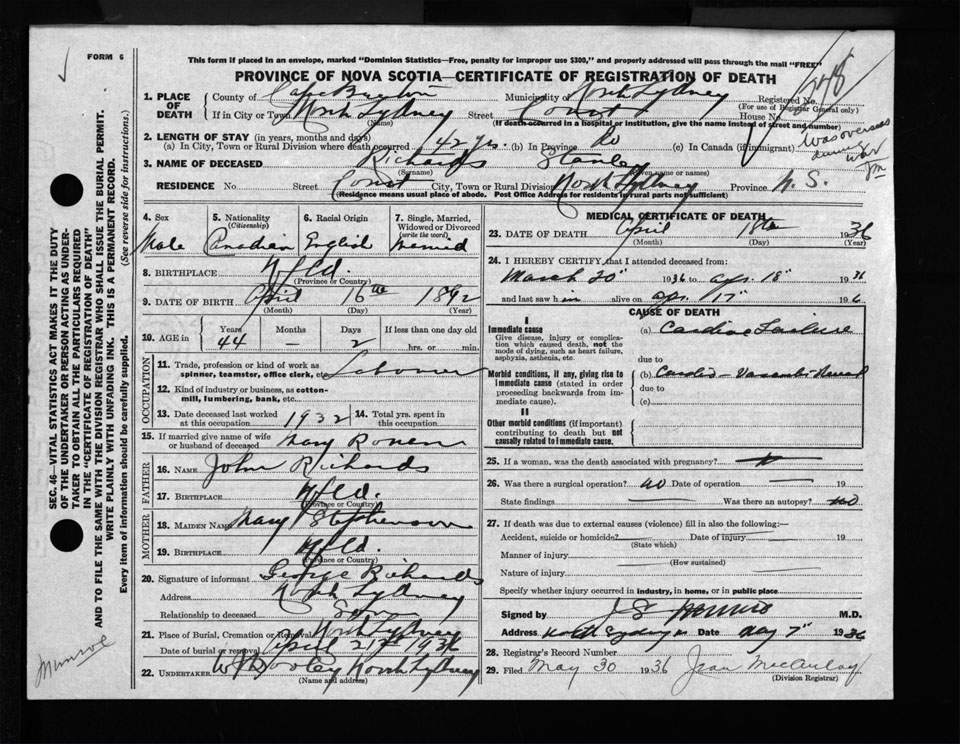 FORM 6
This form if placed in an envelope, marked "Dominion Statistics—Free, penalty for improper use $300," and properly addressed will pass through the mail "FREE"
PROVINCE OF NOVA SCOTIA—CERTIFICATE OF REGISTRATION OF DEATH
1. PLACE OF DEATH
County of Cape Breton Municipality of North Sydney Registered No.
(For use of Registrar General only)
If in City or Town North Sydney Street Court House No.
(Name) (If death occurred in a hospital or institution, give the name instead of street and number)
2. LENGTH OF STAY (in years, months and days)
(a) In City, Town or Rural Division where death occurred 42 yrs. (b) In Province Do (c) In Canada (if immigrant)
Was overseas during war
3. NAME OF DECEASED Richards Stanley
(Surname) (Given name or names)
RESIDENCE No. Street Court City, Town or Rural Division North Sydney Province N. S.
(Residence means usual place of abode. Post Office Address for residents of rural parts not sufficient)
4. Sex Male
5. Nationality (Citizenship) Canadian
6. Racial Origin English
7. Single, Married, Widowed or Divorced (write the word) Married
8. BIRTHPLACE Nfld.
(Province or Country)
9. DATE OF BIRTH April 16th 1892
(Month) (Day) (Year)
10. AGE in Years Months Days If less than one day old
44 — 2 hrs. or min.
OCCUPATION
11. Trade, profession or kind of work as spinner, teamster, office clerk, etc. Labourer
12. Kind of industry or business, as cotton-mill, lumbering, bank, etc.
13. Date deceased last worked at this occupation 1932
14. Total yrs. spent in this occupation
15. If married give name of wife or husband of deceased Mary
FATHER
16. NAME John Richards
17. BIRTHPLACE Nfld.
(Province or Country)
MOTHER
18. MAIDEN NAME Mary Stephenson
19. BIRTHPLACE Nfld.
(Province or Country)
20. Signature of informant George Richards
Address North Sydney
Relationship to deceased Son
21. Place of Burial, Cremation or Removal North Sydney
Date of burial or removal April 21st 1936
22. UNDERTAKER Dooley North Sydney
(Name and address)
MEDICAL CERTIFICATE OF DEATH
23. DATE OF DEATH April 18th 1936
(Month) (Day) (Year)
24. I HEREBY CERTIFY that I attended deceased from:
March 20" 1936 to apr. 18" 1936
and last saw him alive on apr. 17" 1936
CAUSE OF DEATH
I
Immediate cause
Give disease, injury or complication which caused death, not the mode of dying, such as heart failure, asphyxia, asthenia, etc.
(a) Cardiac Failure
due to
Morbid conditions, if any, giving rise to immediate cause (stated in order proceeding backwards from immediate cause).
(b) Cardio-
due to
(c)
II
Other morbid conditions (if important) contributing to death but not causally related to immediate cause.
25. If a woman, was the death associated with pregnancy?
26. Was there a surgical operation? no Date of operation — 19
State findings Was there an autopsy? no
27. If death was due to external causes (violence) fill in also the following:—
Accident, suicide or homicide? Date of injury 19
(State which)
Manner of injury
(How sustained)
Nature of injury
Specify whether injury occurred in industry, in home, or in public place
Signed by M.D.
Address North Sydney Date May 7" 1936
28. Registrar's Record Number
29. Filed May 30 1936 Jean McAulay
(Division Registrar)
SEC. 46—VITAL STATISTICS ACT MAKES IT THE DUTY OF THE UNDERTAKER OR PERSON ACTING AS UNDERTAKER TO OBTAIN ALL THE PARTICULARS REQUIRED IN THE "CERTIFICATE OF REGISTRATION OF DEATH" AND TO FILE THE SAME WITH THE DIVISION REGISTRAR WHO SHALL ISSUE THE BURIAL PERMIT.
WRITE PLAINLY WITH UNFADING INK. THIS IS A PERMANENT RECORD.
Every item of information should be carefully supplied. (See reverse side for instructions.)
Munroe